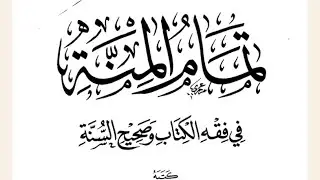 تَمَامُ الْمِنَّةِ
فِي فِقْهِ الْكِتَابِ وَصَحِيحِ السُّنَّةِ
كَتَبَهُ